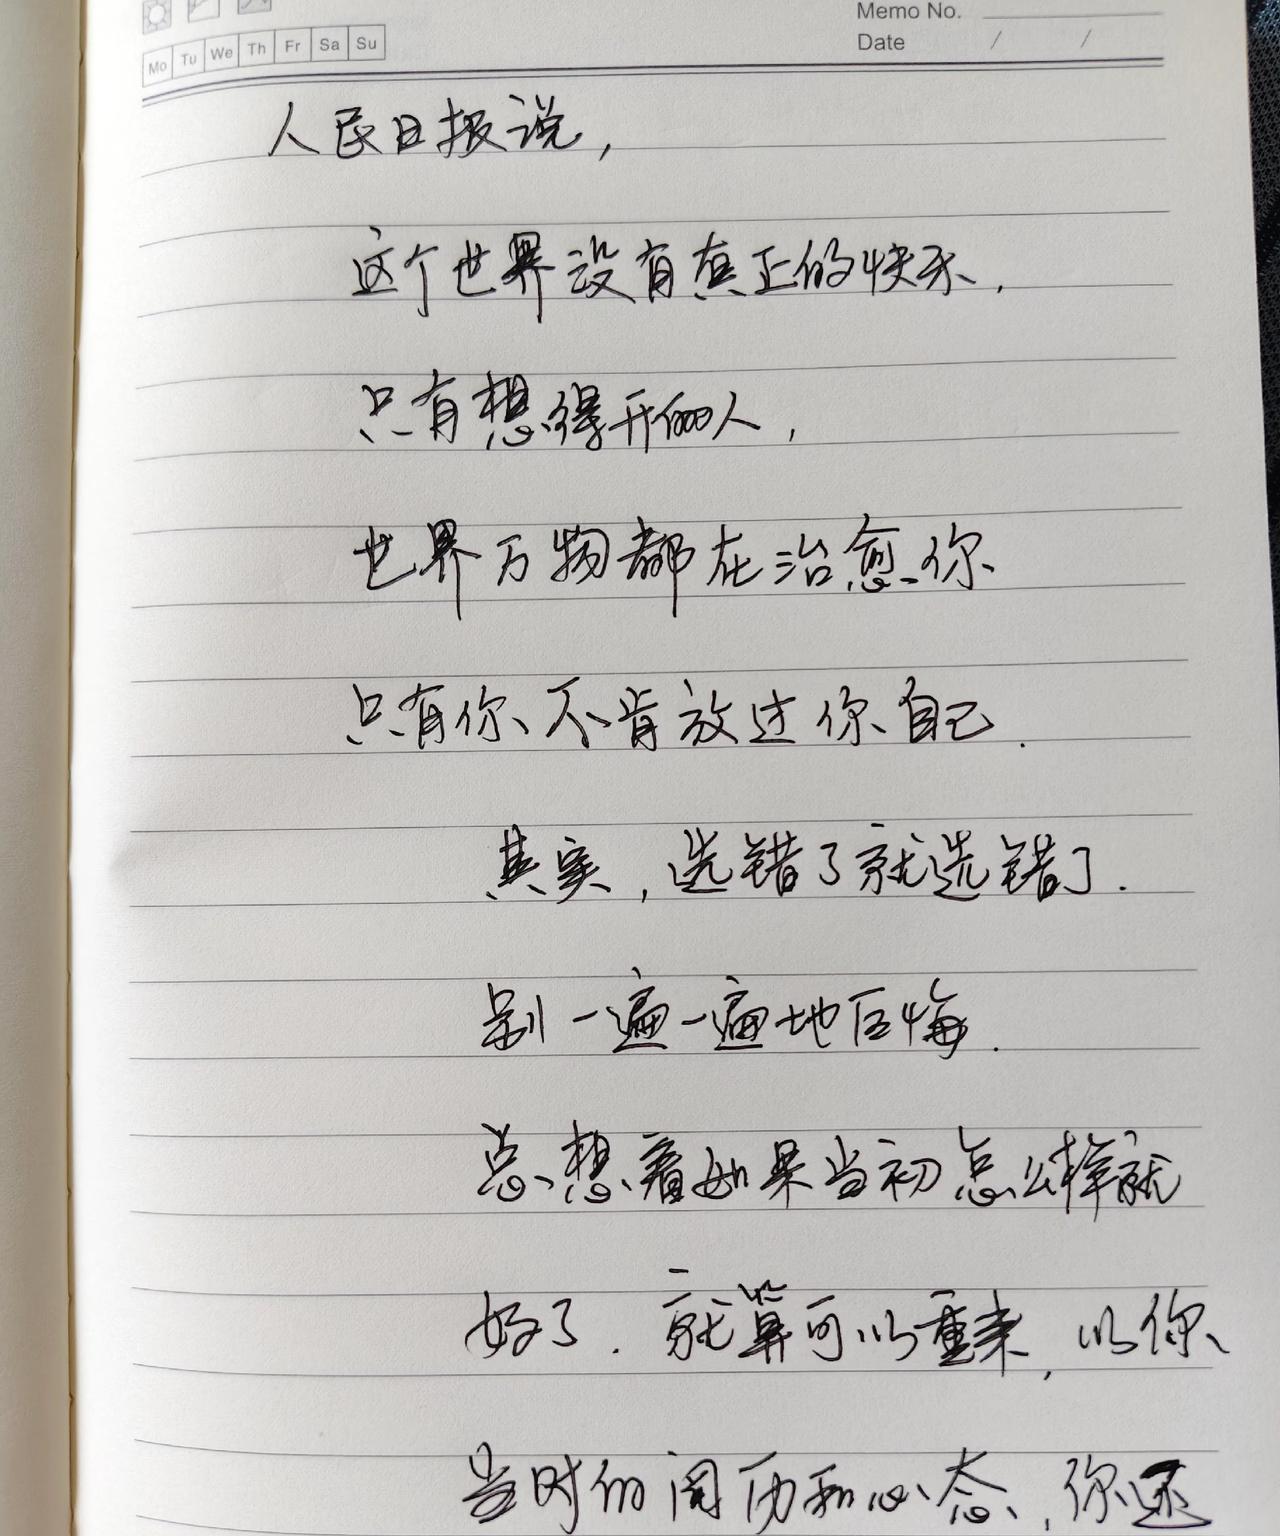 Memo No.
Mo Tu We Th Fr Sa Su
Date / /
人民日报说,
这个世界没有真正的快乐,
只有想得开的人,
世界万物都在治愈你
只有你不肯放过你自己.
其实,选错了就选错了.
别一遍一遍地后悔.
总想着如果当初怎么样就
好了.就算可以重来,以你
当时的阅历和心态,你还